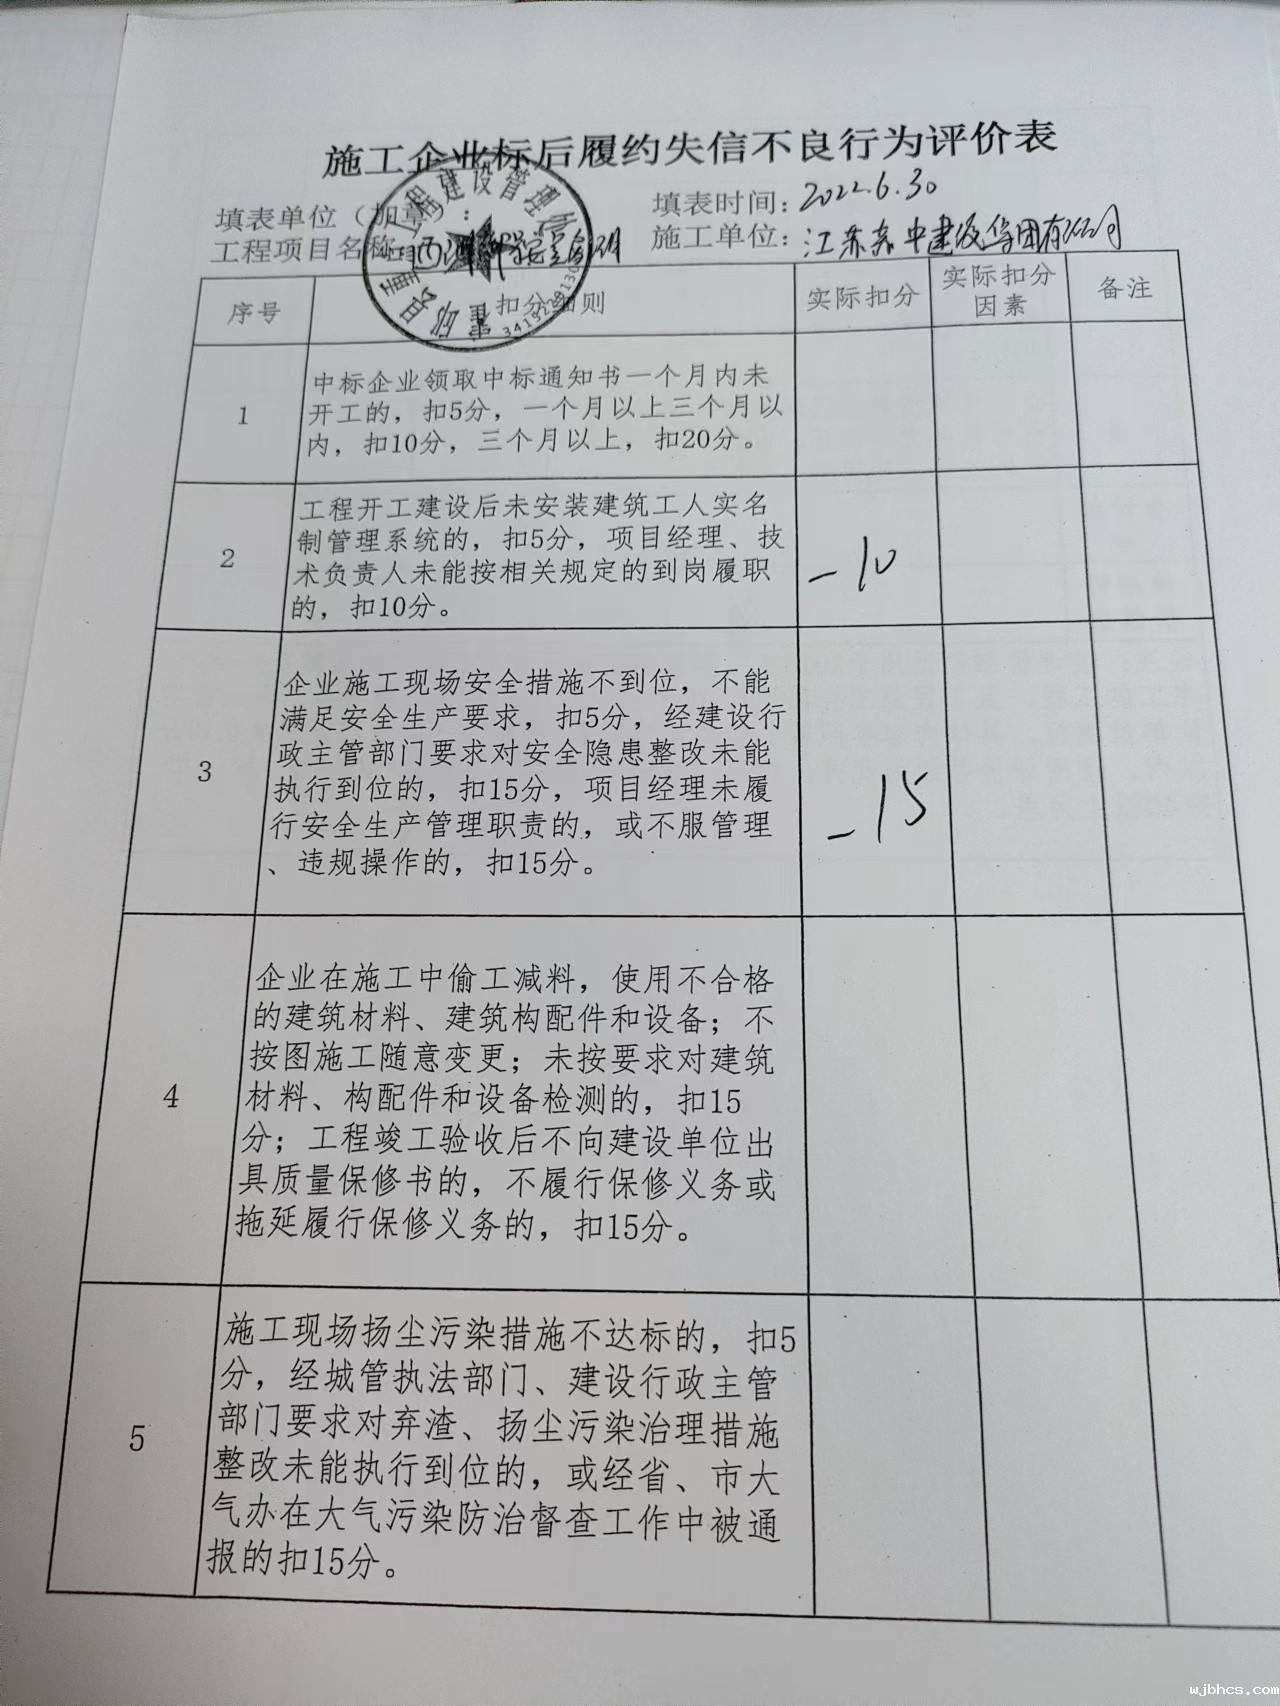 施工企业标后履约失信不良行为评价表
填表单位（加章）：
填表时间：2022.6.30
工程项目名称
施工单位：江苏 中建设集团有限公司
工程建设管理
霍邱县重
序号
扣分细则
实际扣分
实际扣分
因素
备注
1
中标企业领取中标通知书一个月内未
开工的，扣5分，一个月以上三个月以
内，扣10分，三个月以上，扣20分。
2
工程开工建设后未安装建筑工人实名
制管理系统的，扣5分，项目经理、技
术负责人未能按相关规定的到岗履职
的，扣10分。
-10
3
企业施工现场安全措施不到位，不能
满足安全生产要求，扣5分，经建设行
政主管部门要求对安全隐患整改未能
执行到位的，扣15分，项目经理未履
行安全生产管理职责的，或不服管理
、违规操作的，扣15分。
-15
4
企业在施工中偷工减料，使用不合格
的建筑材料、建筑构配件和设备；不
按图施工随意变更；未按要求对建筑
材料、构配件和设备检测的，扣15
分；工程竣工验收后不向建设单位出
具质量保修书的，不履行保修义务或
拖延履行保修义务的，扣15分。
5
施工现场扬尘污染措施不达标的，扣5
分，经城管执法部门、建设行政主管
部门要求对弃渣、扬尘污染治理措施
整改未能执行到位的，或经省、市大
气办在大气污染防治督查工作中被通
报的扣15分。
wjbhcs.com